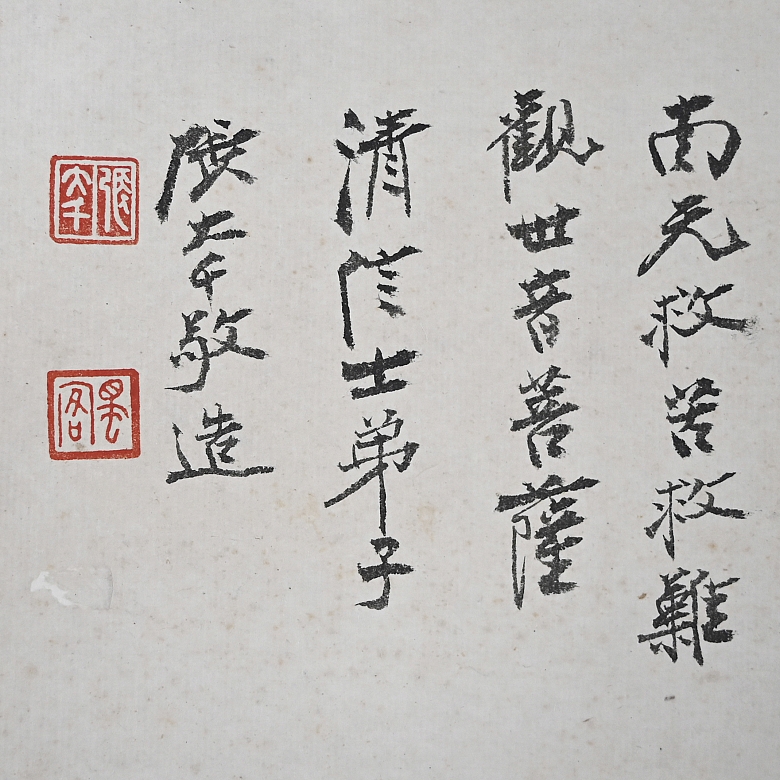 南无救苦救難
觀世音菩薩
清信士弟子
張大千敬造
張大千
蜀客